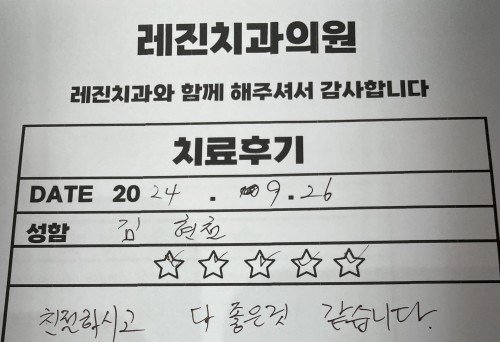 레진치과의원
레진치과와 함께 해주셔서 감사합니다
치료후기
DATE 20 24 . 09 . 26
성함 김 현철
친절하시고 다 좋은것 같습니다.